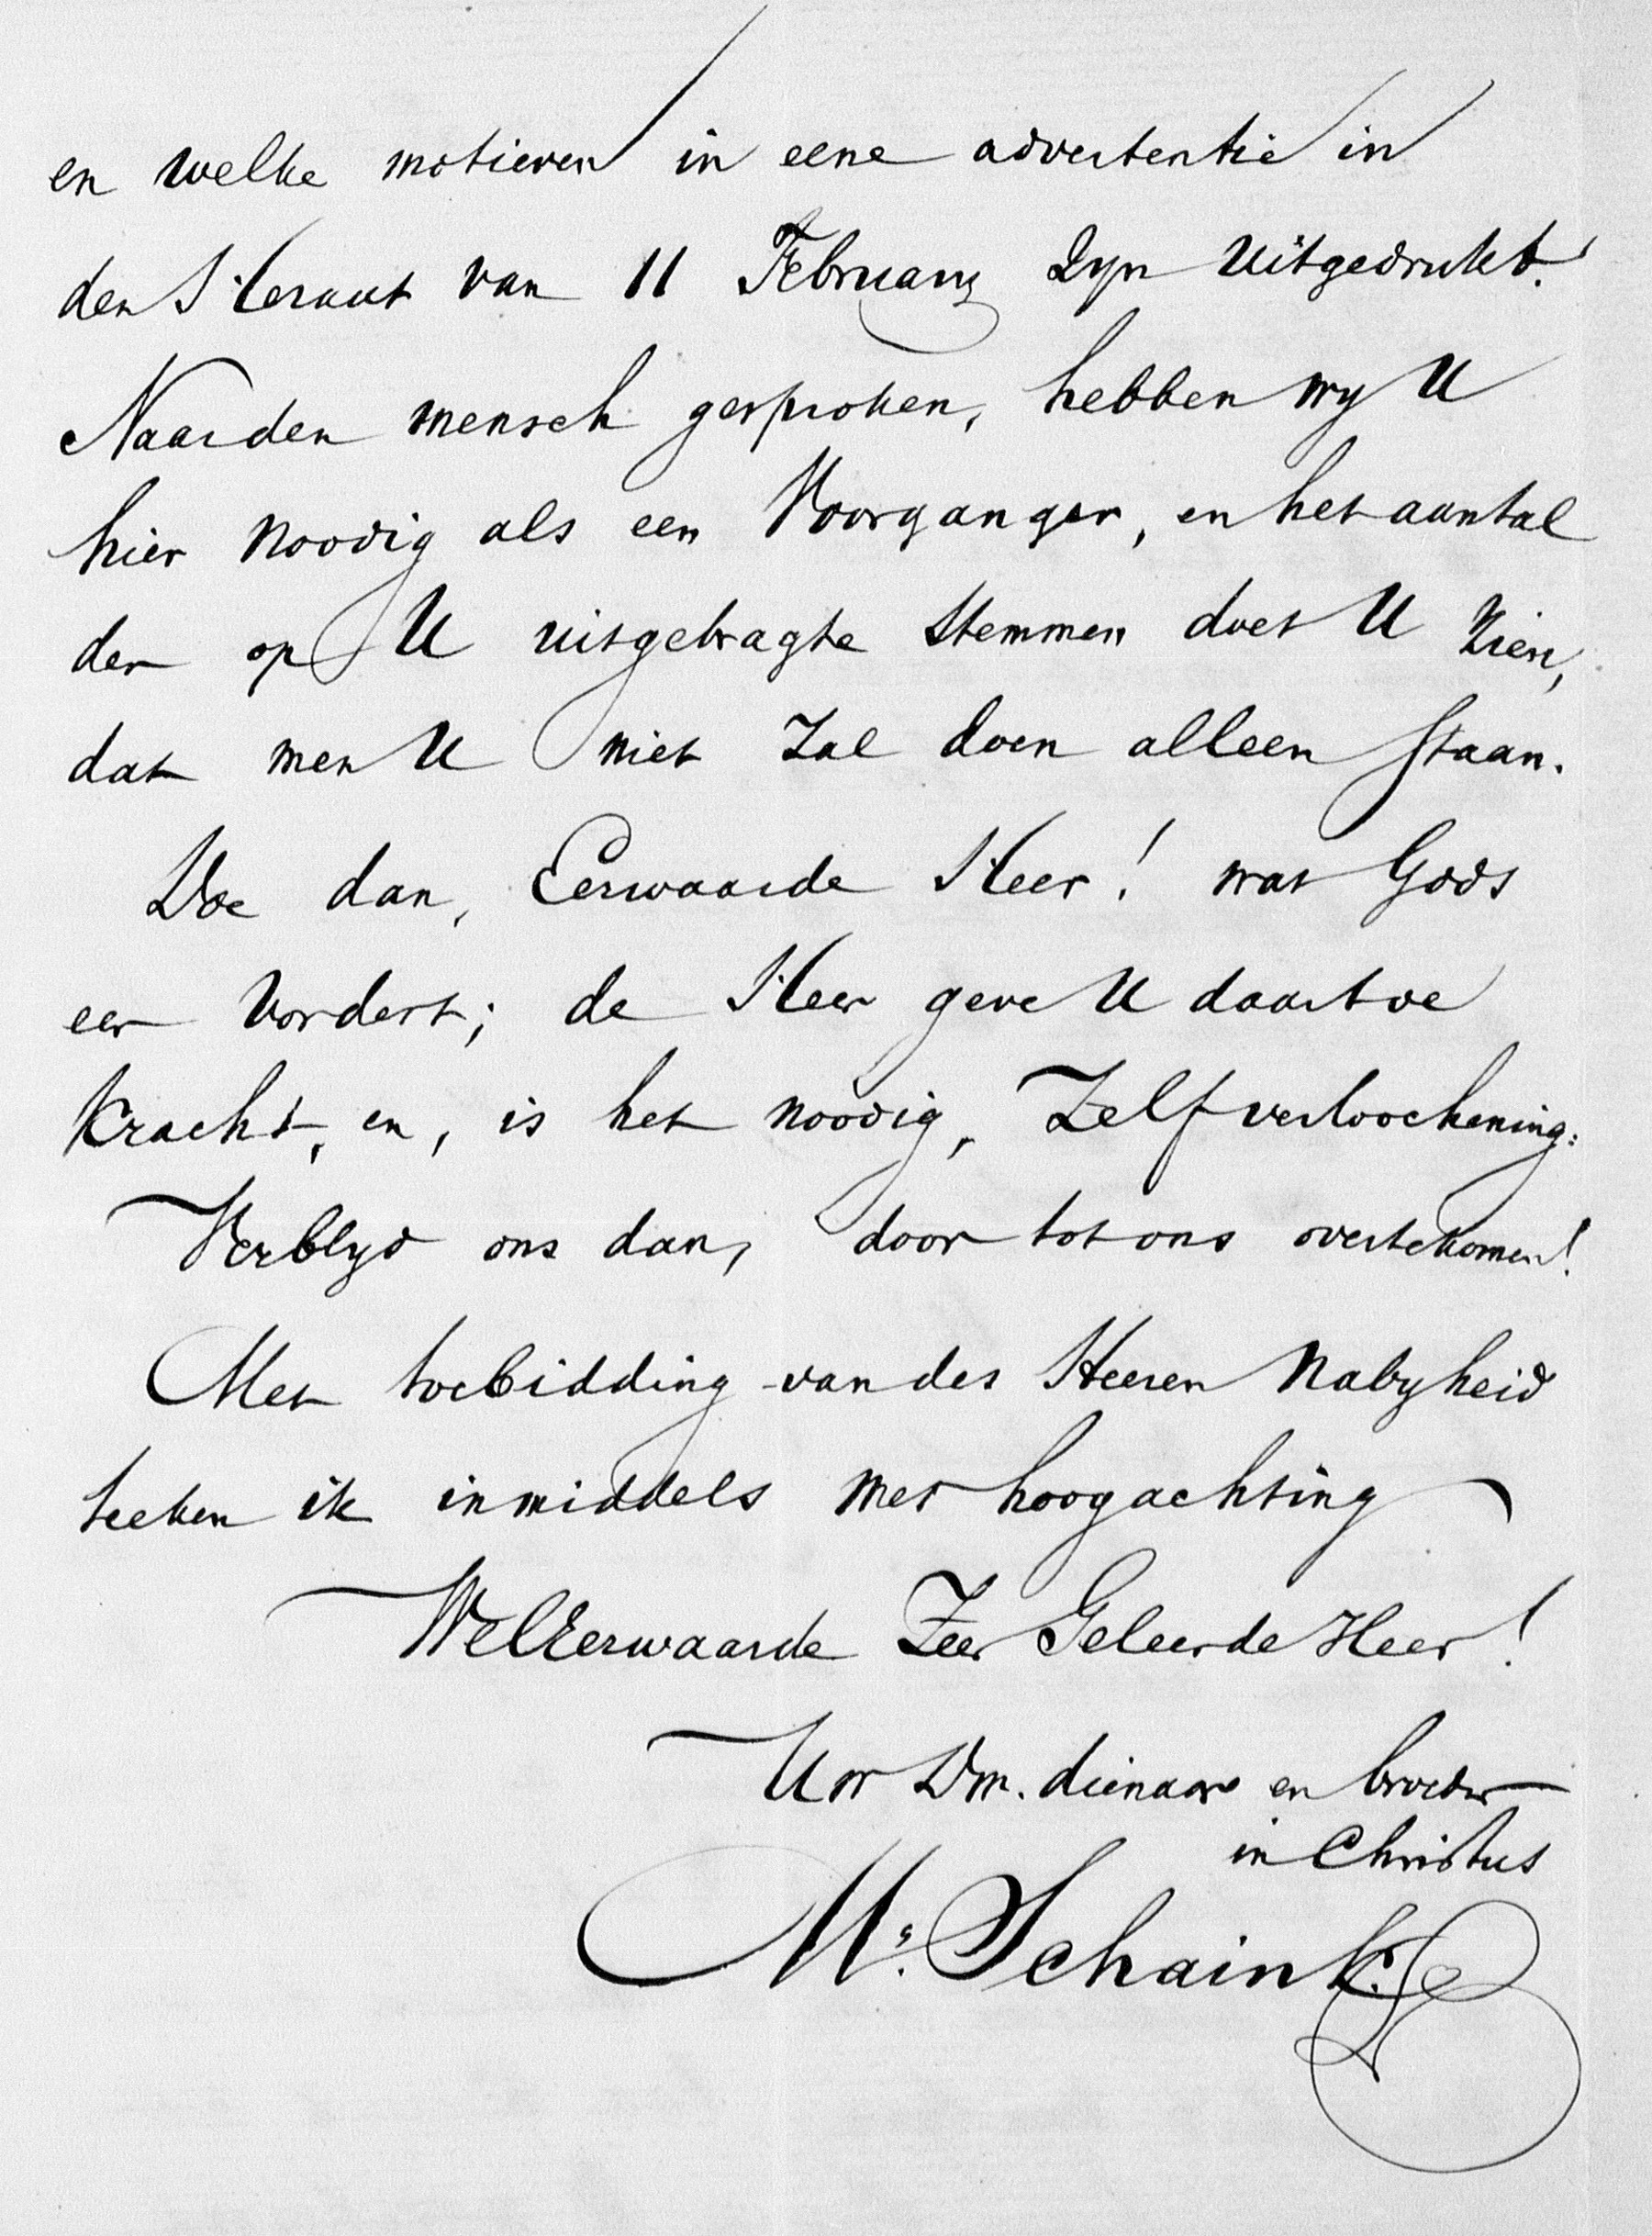 en welke motieven in eene advertentie in
den Heraut van 11 February zyn uitgedrukt.
Naar den mensch gesproken, hebben wy U
hier noodig als een Voorganger, en het aantal
der op U uitgebragte stemmen doet U zien,
dat men U niet zal doen alleen staan.
Doe dan, Eerwaarde Heer! wat Gods
eer vordert; de Heer geve U daartoe
kracht, en, is het noodig, zelfverloochening:
Verblyd ons dan, door tot ons over te komen!
Met toebidding van des Heeren nabyheid
teeken ik inmiddels met hoogachting
WelEerwaarde Zeer Geleerde Heer!
Uw Dw. dienaar en broeder
in Christus
Ms. Schaink.